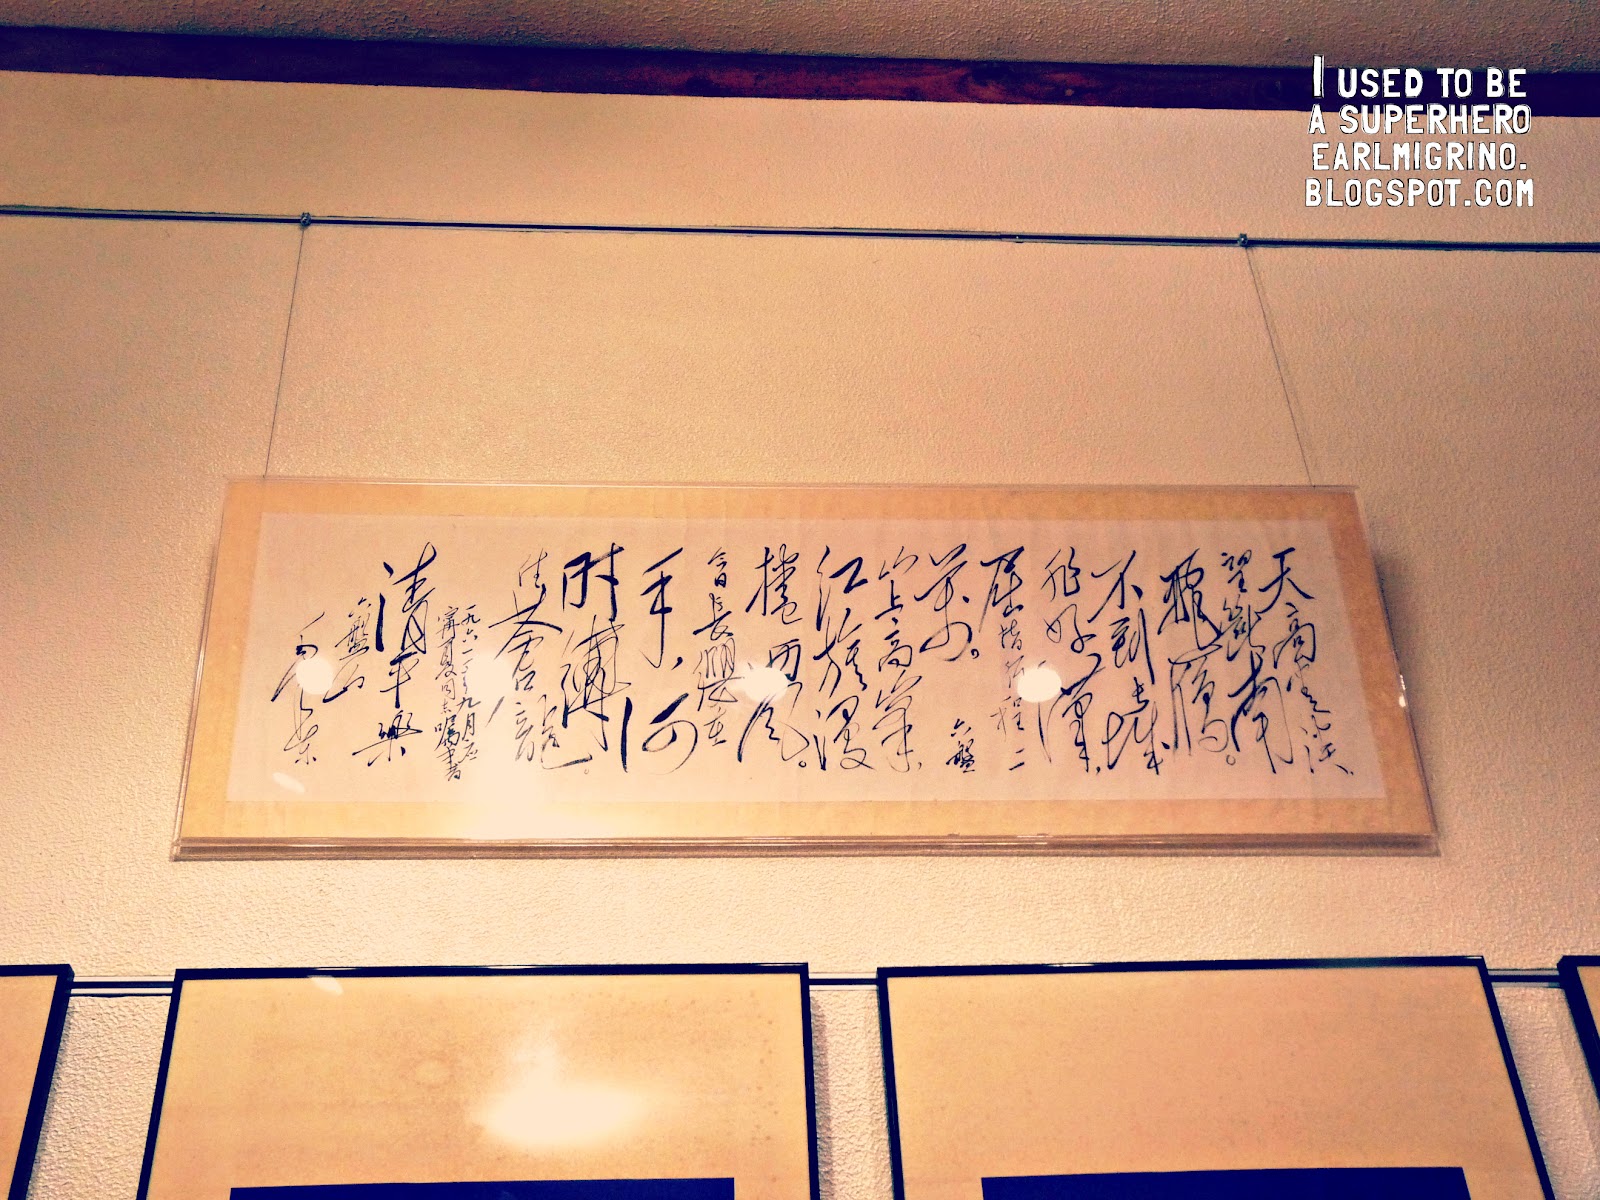 I USED TO BE
A SUPERHERO
EARLMIGRINO.
BLOGSPOT.COM
天高云淡,
望断南
飛雁。
不到长城
非好漢,
屈指行程二
萬。六盤
山上高峯,
红旗漫
捲西风。
今日长缨在
手,何
时缚
住苍龍。
一九六一年九月应
寧夏同志嘱书
清平樂
六盤山
毛泽东